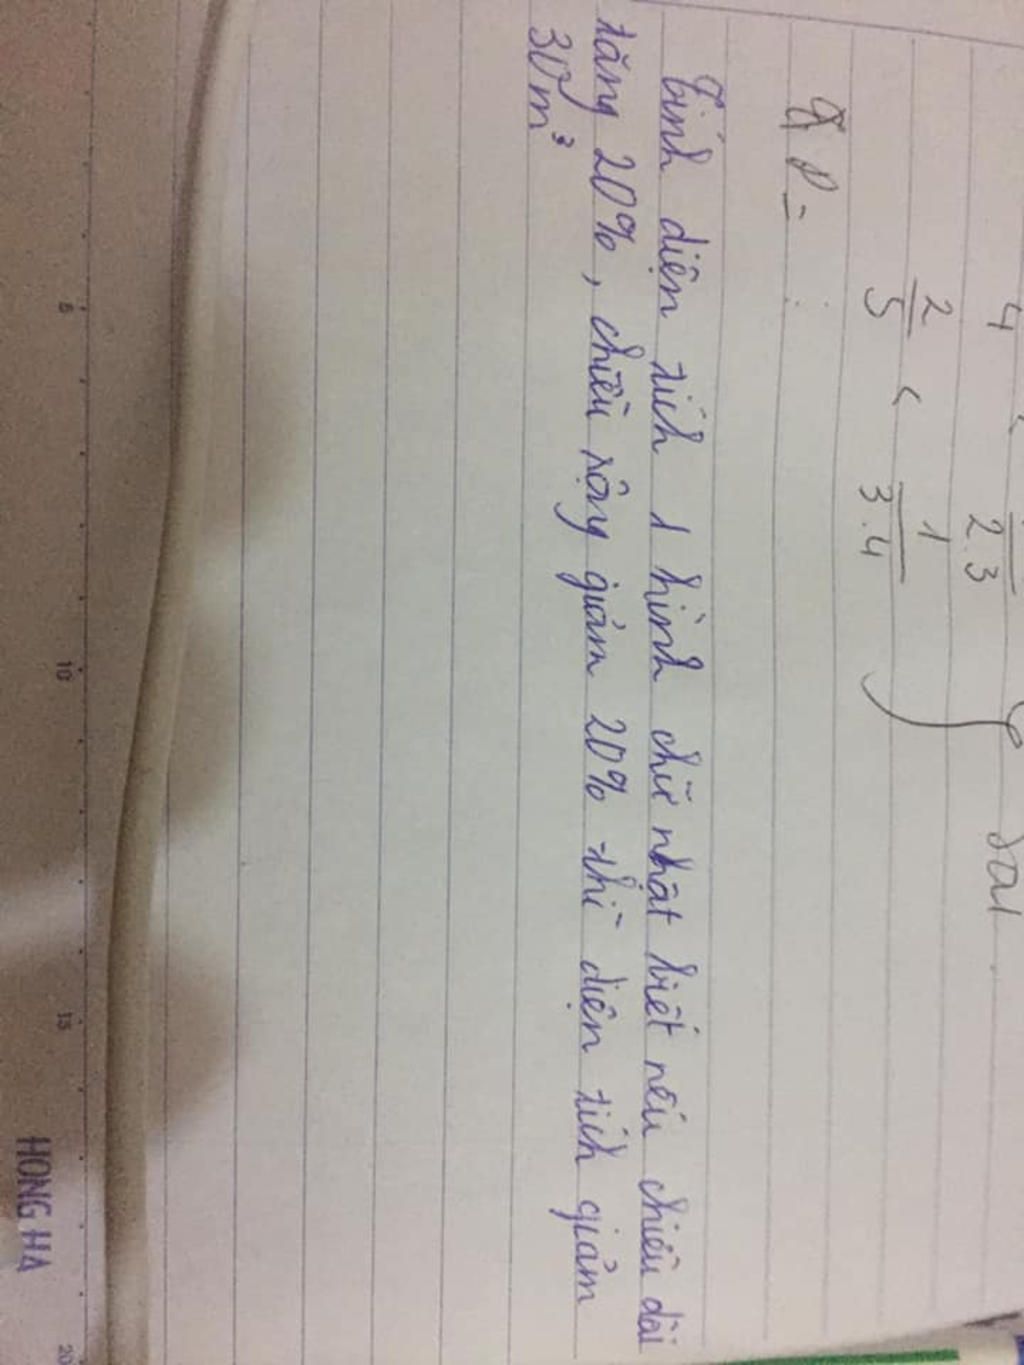 4 2.3 sai
2/5 < 1/3.4
P =
Tính diện tích 1 hình chữ nhật biết nếu chiều dài
tăng 20%, chiều rộng giảm 20% thì diện tích giảm
30m³
5 10 15 20
HONG HA